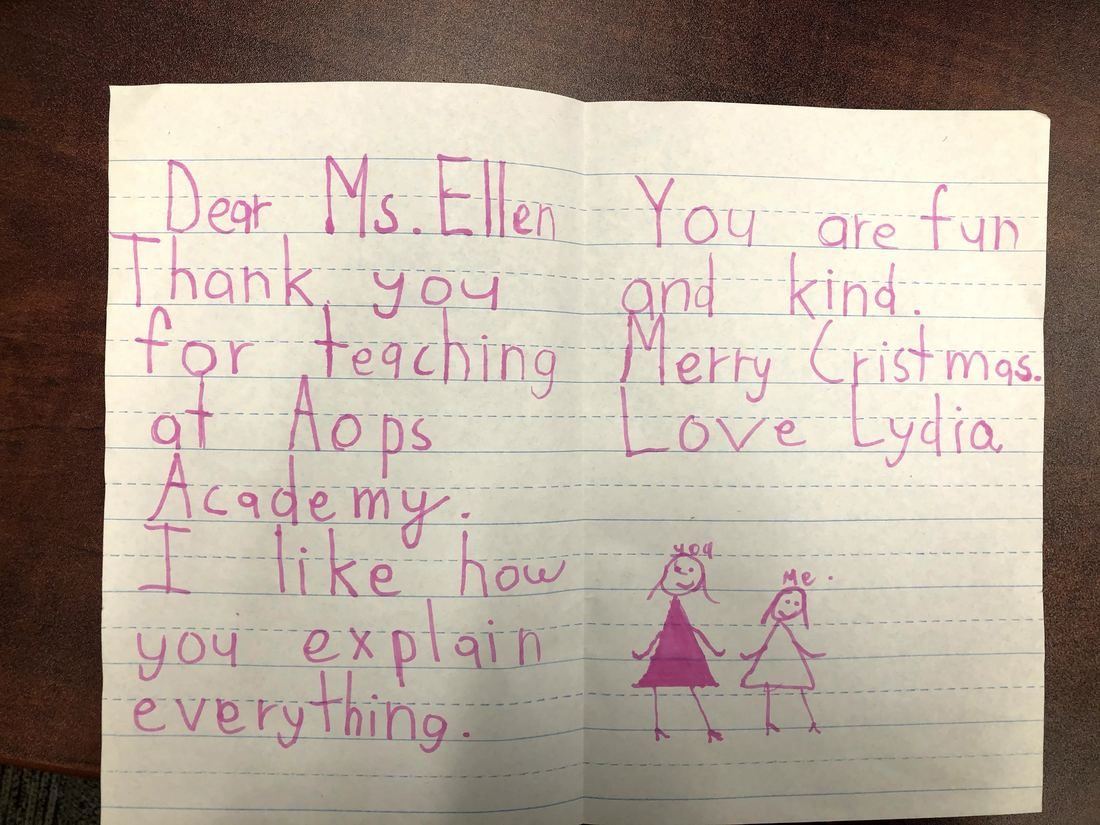 Dear Ms. Ellen
Thank you
for teaching
at Aops
Academy.
I like how
you explain
everything.
You are fun
and kind.
Merry Cristmas.
Love Lydia
you
Me.